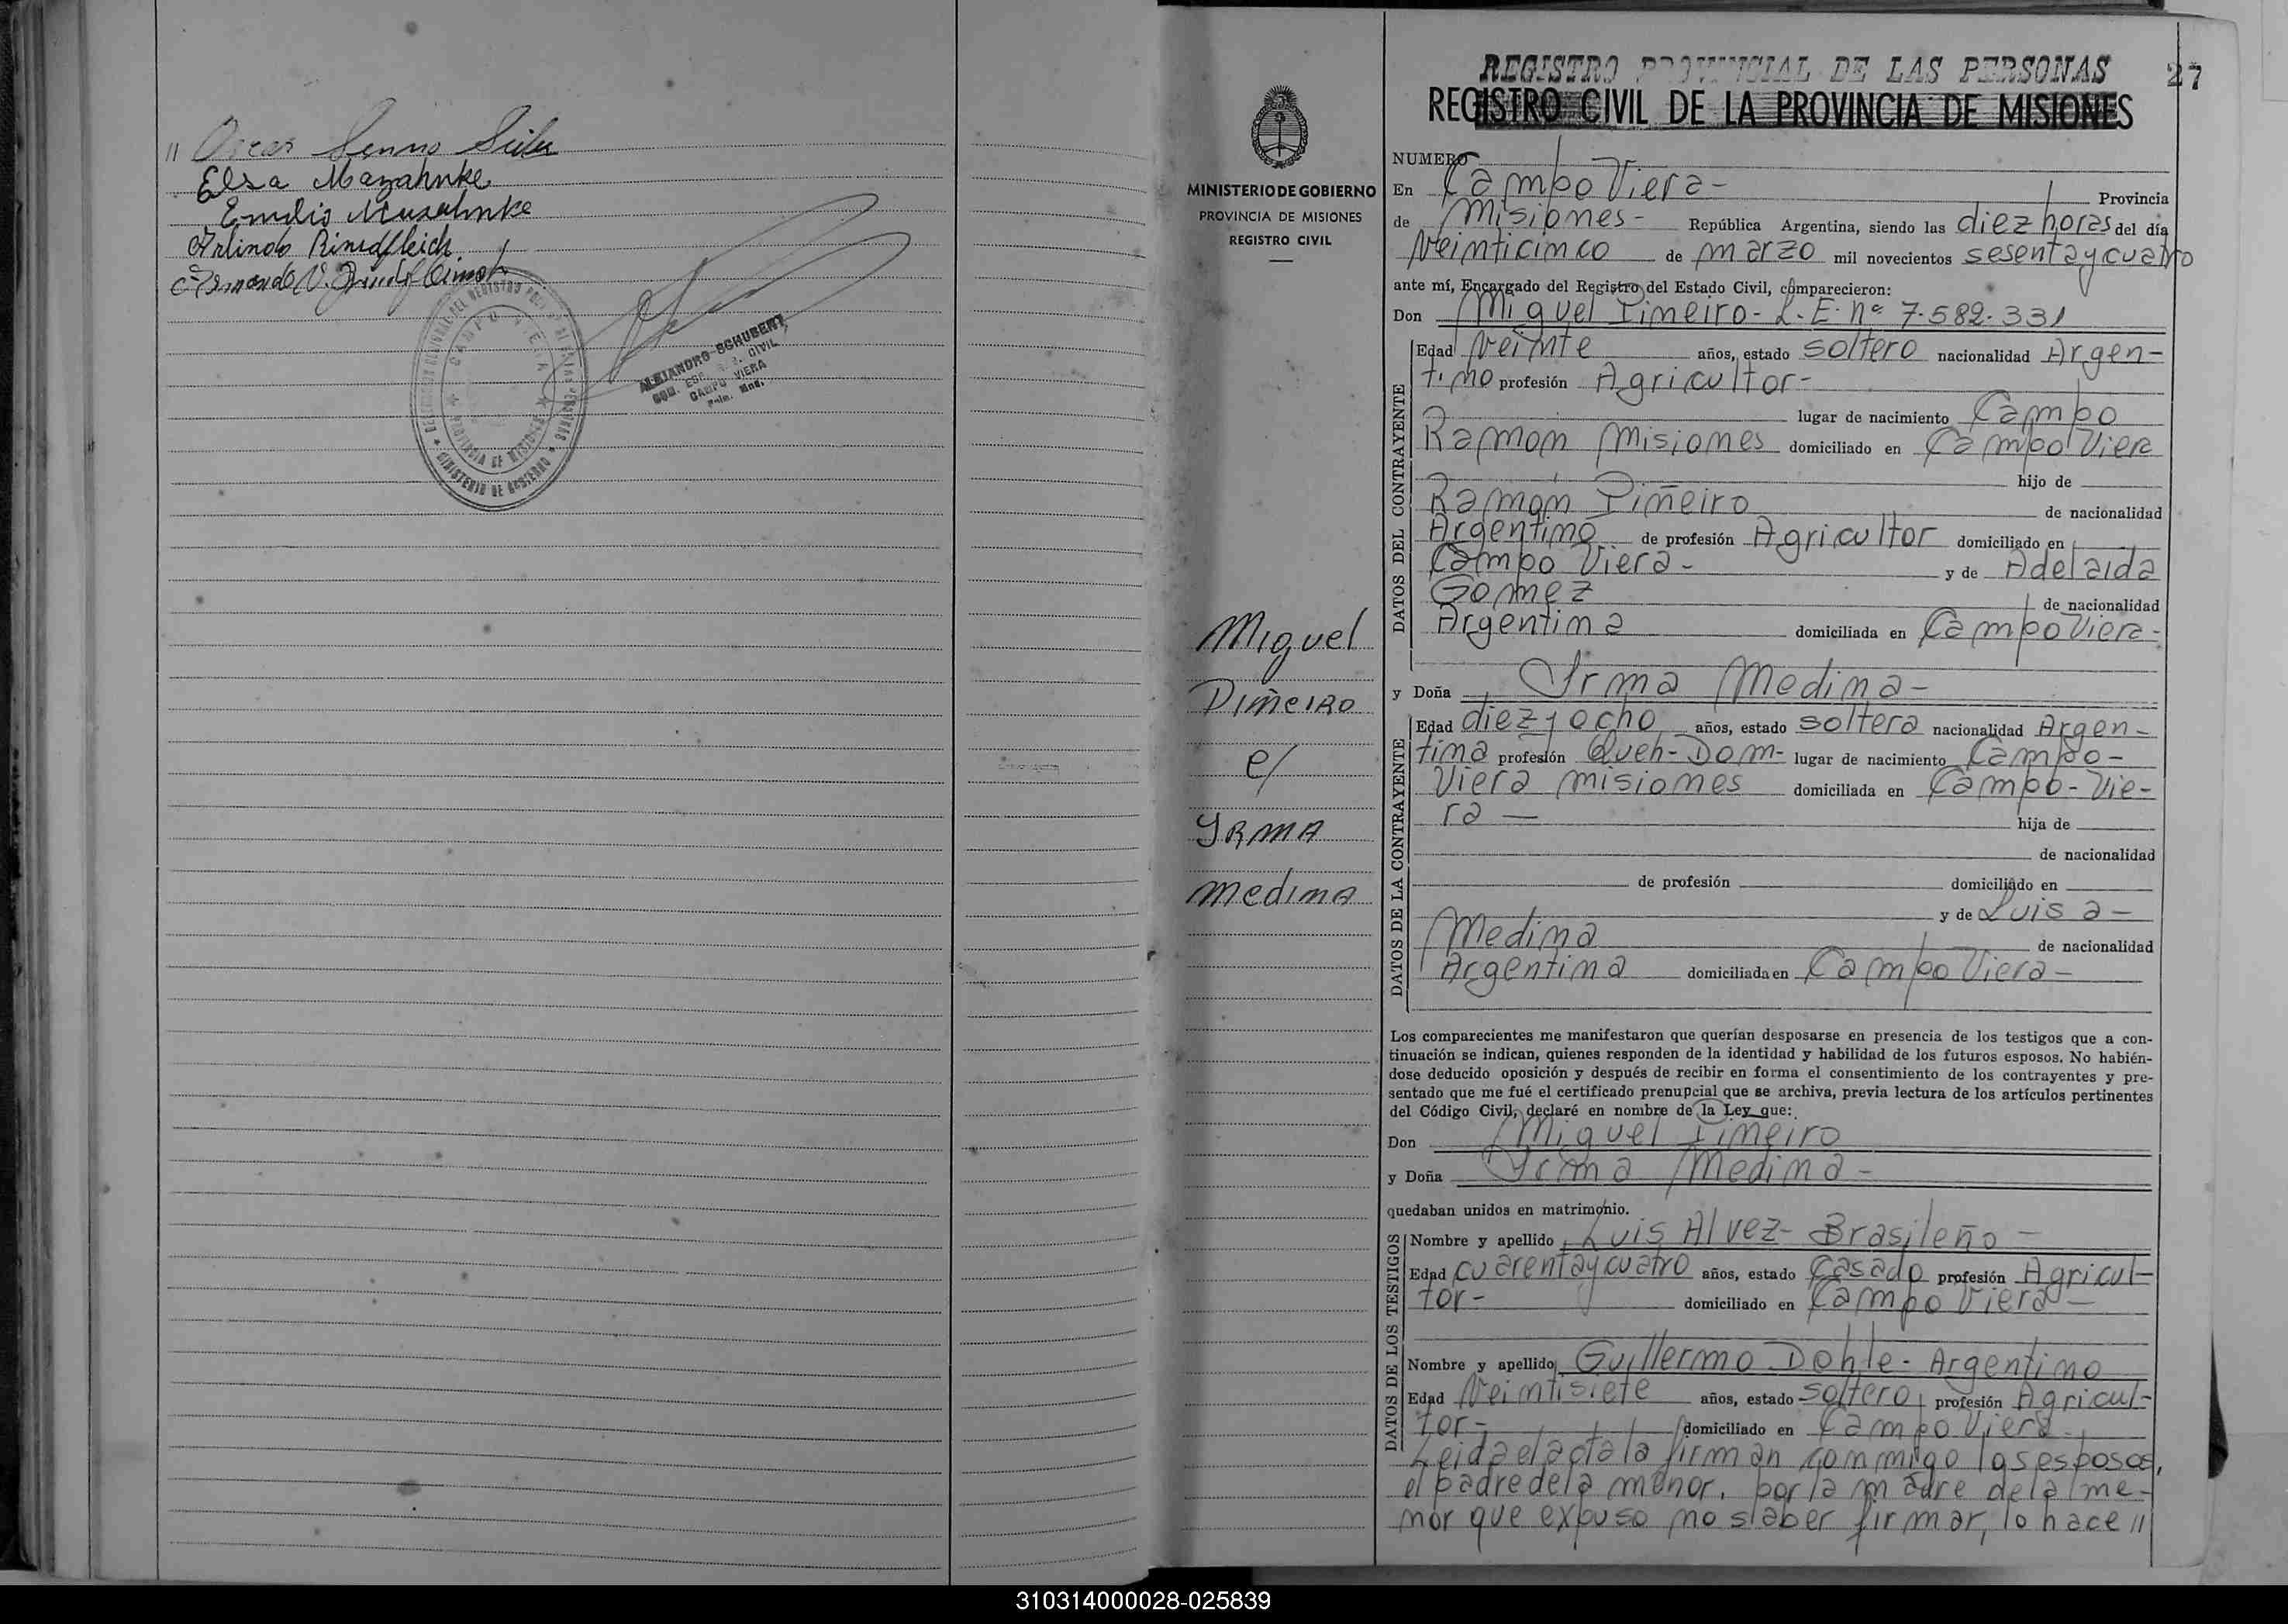 " Oscar Benno
Elsa Mazahnke
Emilio Muzahnke
Arlindo Rindfleich
Armando V.
ALEJANDRO SCHUBERT
CIVIL
CAMPO VIERA
Mnes.
CAMPO VIERA
PROVINCIA DE MISIONES
MINISTERIO DE GOBIERNO
MINISTERIO DE GOBIERNO
PROVINCIA DE MISIONES
REGISTRO CIVIL
Miguel
Piñeiro
e/
Yrma
Medina
REGISTRO PROVINCIAL DE LAS PERSONAS
27
REGISTRO CIVIL DE LA PROVINCIA DE MISIONES
NUMERO
En Campo Viera- Provincia
de Misiones- República Argentina, siendo las diez horas del día
Veinticinco de marzo mil novecientos sesenta y cuatro
ante mí, Encargado del Registro del Estado Civil, comparecieron:
Don Miguel Piñeiro- L.E. nº 7.582.331
DATOS DEL CONTRAYENTE
Edad Veinte años, estado soltero nacionalidad Argen-
tino profesión Agricultor-
lugar de nacimiento Campo
Ramon Misiones domiciliado en Campo Viera
hijo de
Ramón Piñeiro de nacionalidad
Argentino de profesión Agricultor domiciliado en
Campo Viera- y de Adelaida
Gomez de nacionalidad
Argentina domiciliada en Campo Viera-
y Doña Irma Medina-
DATOS DE LA CONTRAYENTE
Edad diez y ocho años, estado soltera nacionalidad Argen-
tina profesión Queh-Dom- lugar de nacimiento Campo-
Viera Misiones domiciliada en Campo-Vie-
ra — hija de
de nacionalidad
de profesión domiciliado en
y de Luisa-
Medina de nacionalidad
Argentina domiciliada en Campo Viera-
Los comparecientes me manifestaron que querían desposarse en presencia de los testigos que a con-
tinuación se indican, quienes responden de la identidad y habilidad de los futuros esposos. No habién-
dose deducido oposición y después de recibir en forma el consentimiento de los contrayentes y pre-
sentado que me fué el certificado prenupcial que se archiva, previa lectura de los artículos pertinentes
del Código Civil, declaré en nombre de la Ley que:
Don Miguel Piñeiro
y Doña Irma Medina-
quedaban unidos en matrimonio.
DATOS DE LOS TESTIGOS
Nombre y apellido Luis Alvez- Brasileño-
Edad cuarenta y cuatro años, estado Casado profesión Agricul-
tor- domiciliado en Campo Viera-
Nombre y apellido Guillermo Dohle- Argentino
Edad Veintisiete años, estado soltero profesión Agricul-
tor- domiciliado en Campo Viera-
Leida el acta la firman conmigo los esposos,
el padre del menor, por la madre del me-
nor que expuso no saber firmar, lo hace "
310314000028-025839